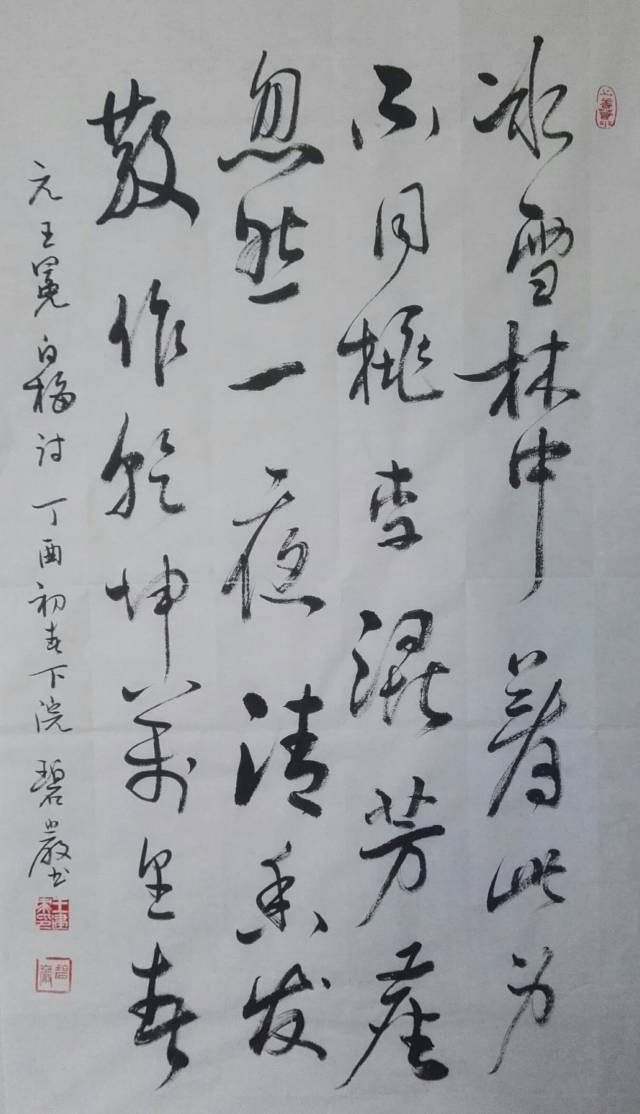 冰雪林中着此身
不同桃李混芳尘
忽然一夜清香发
散作乾坤万里春
元王冕白梅诗丁酉初春下浣碧岩书